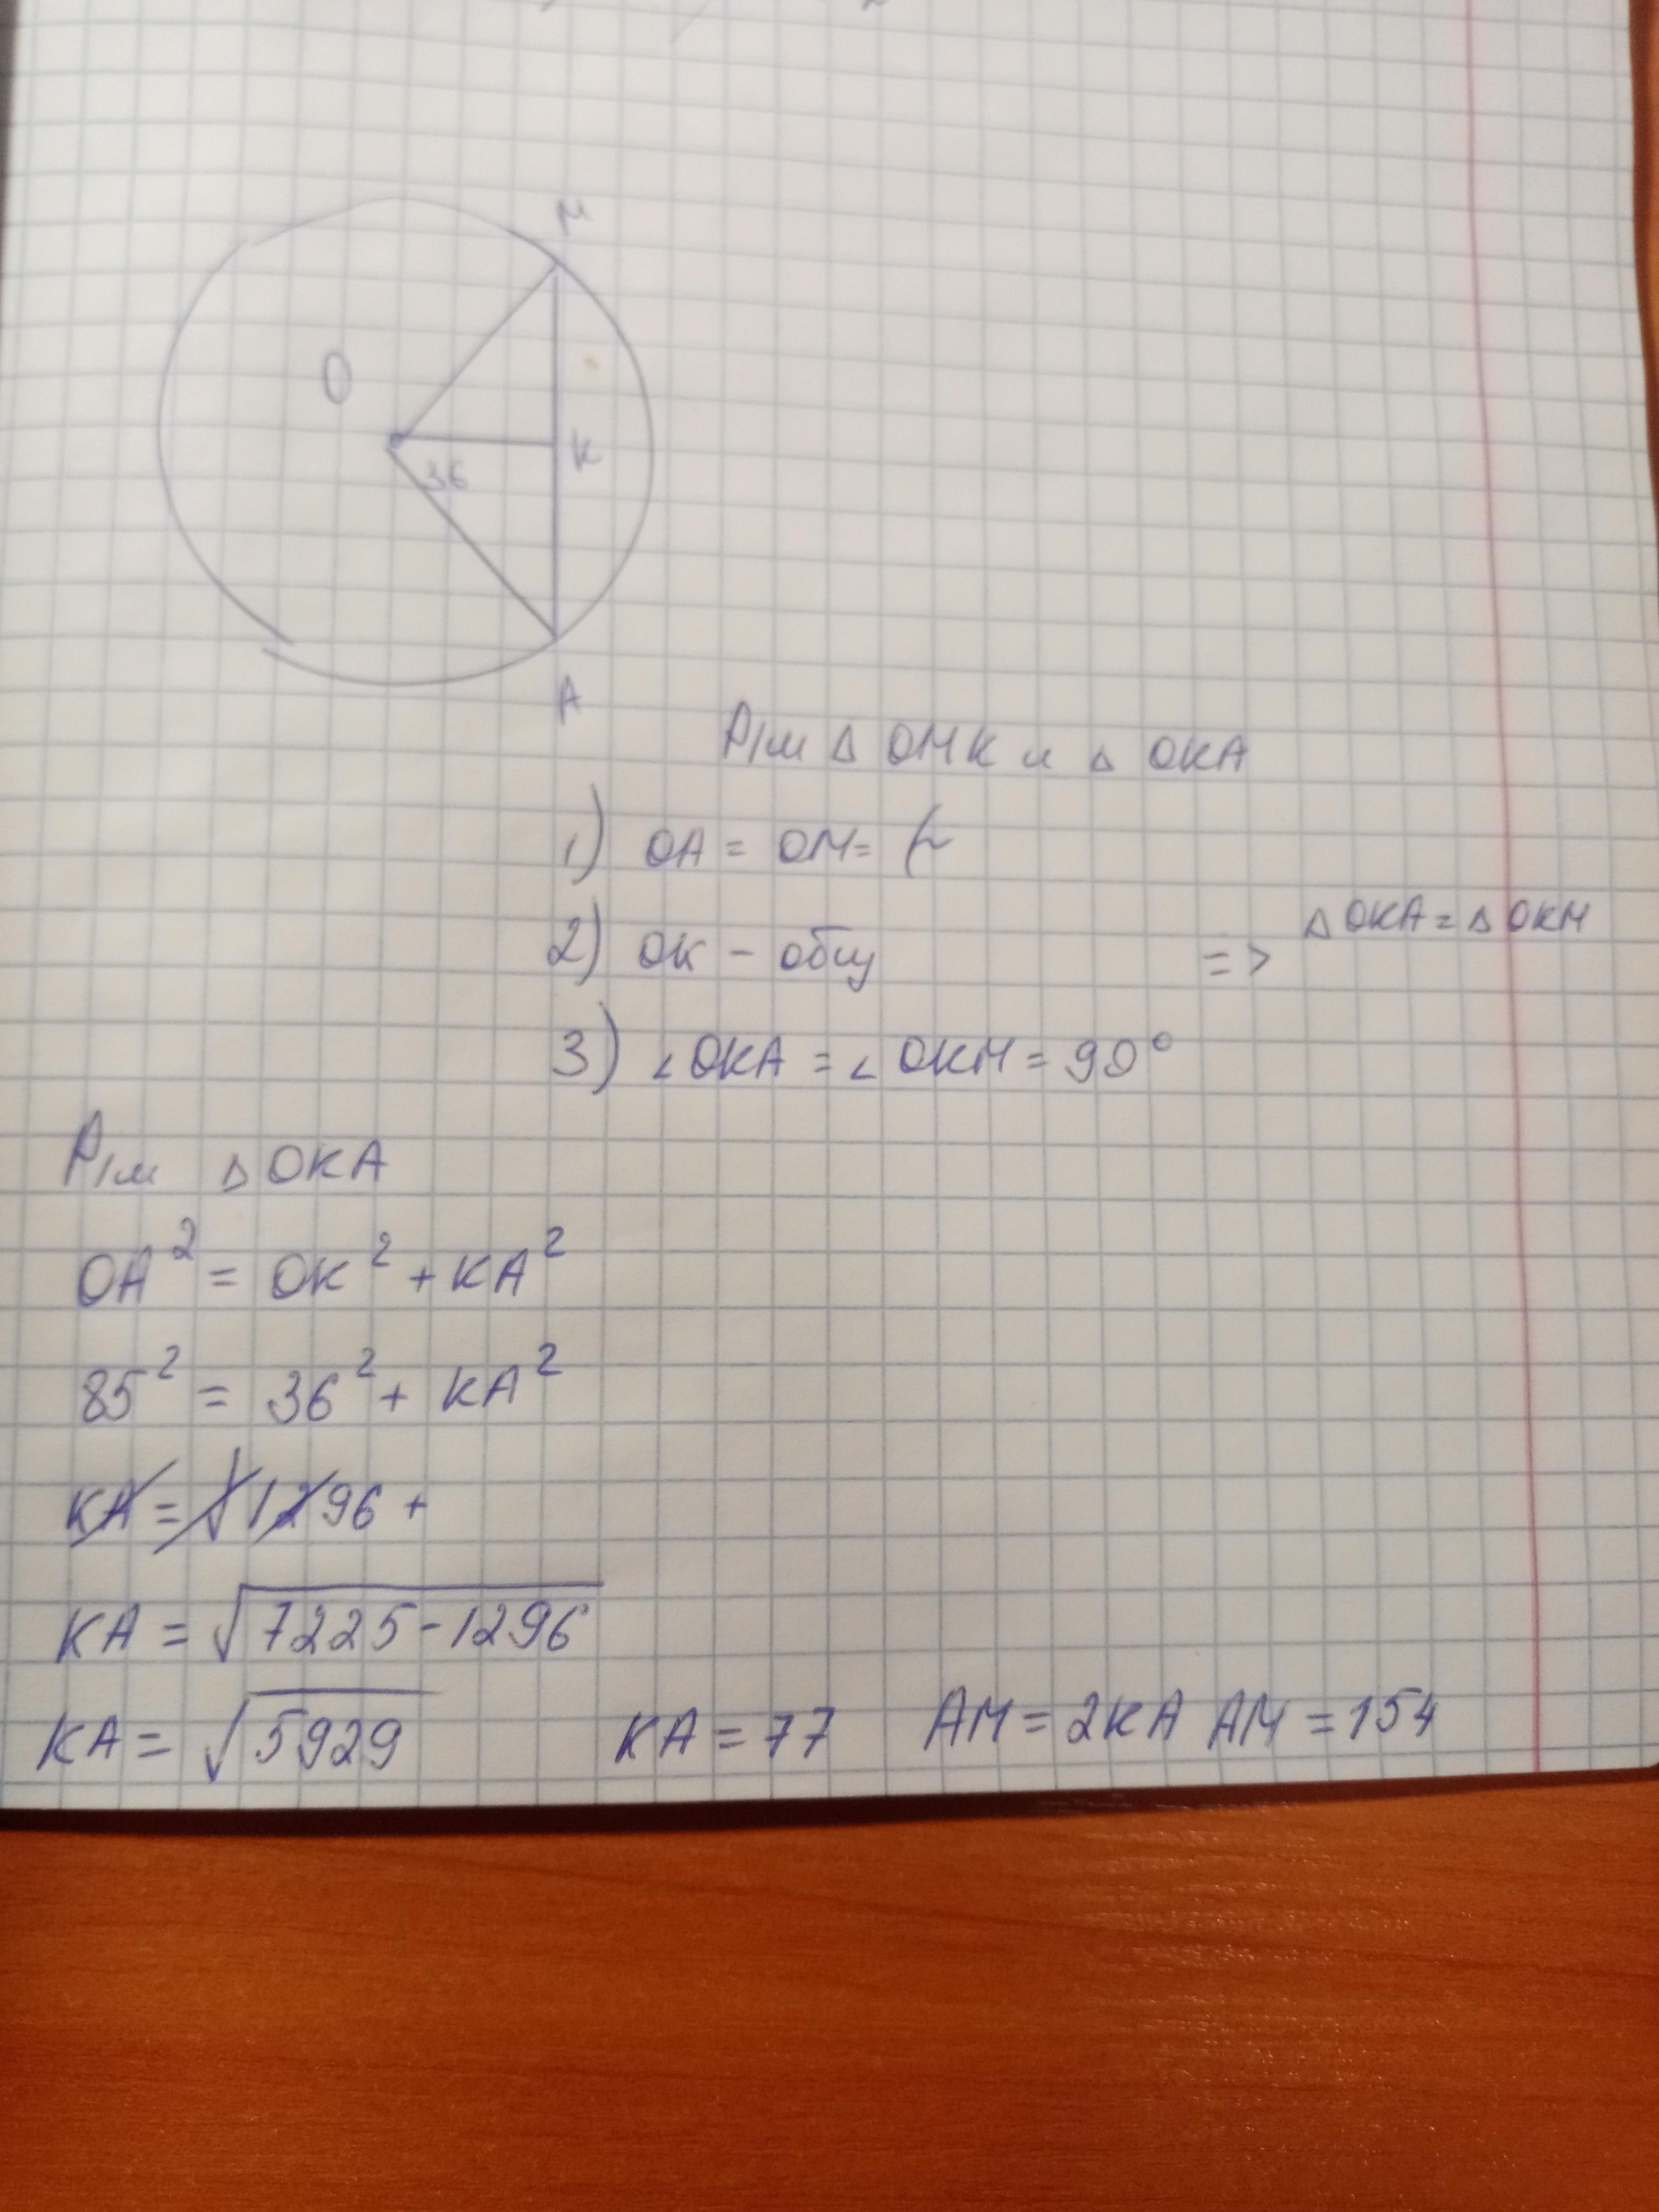 M
O
36
K
A
Р/м Δ OMK и Δ OKA
1) OA = OM = r
2) OK - общ
=> Δ OKA = Δ OKM
3) ∠ OKA = ∠ OKM = 90°
Р/м Δ OKA
OA² = OK² + KA²
85² = 36² + KA²
KA = √1296 +
KA = √7225-1296
KA = √5929 KA = 77 AM = 2KA AM = 154